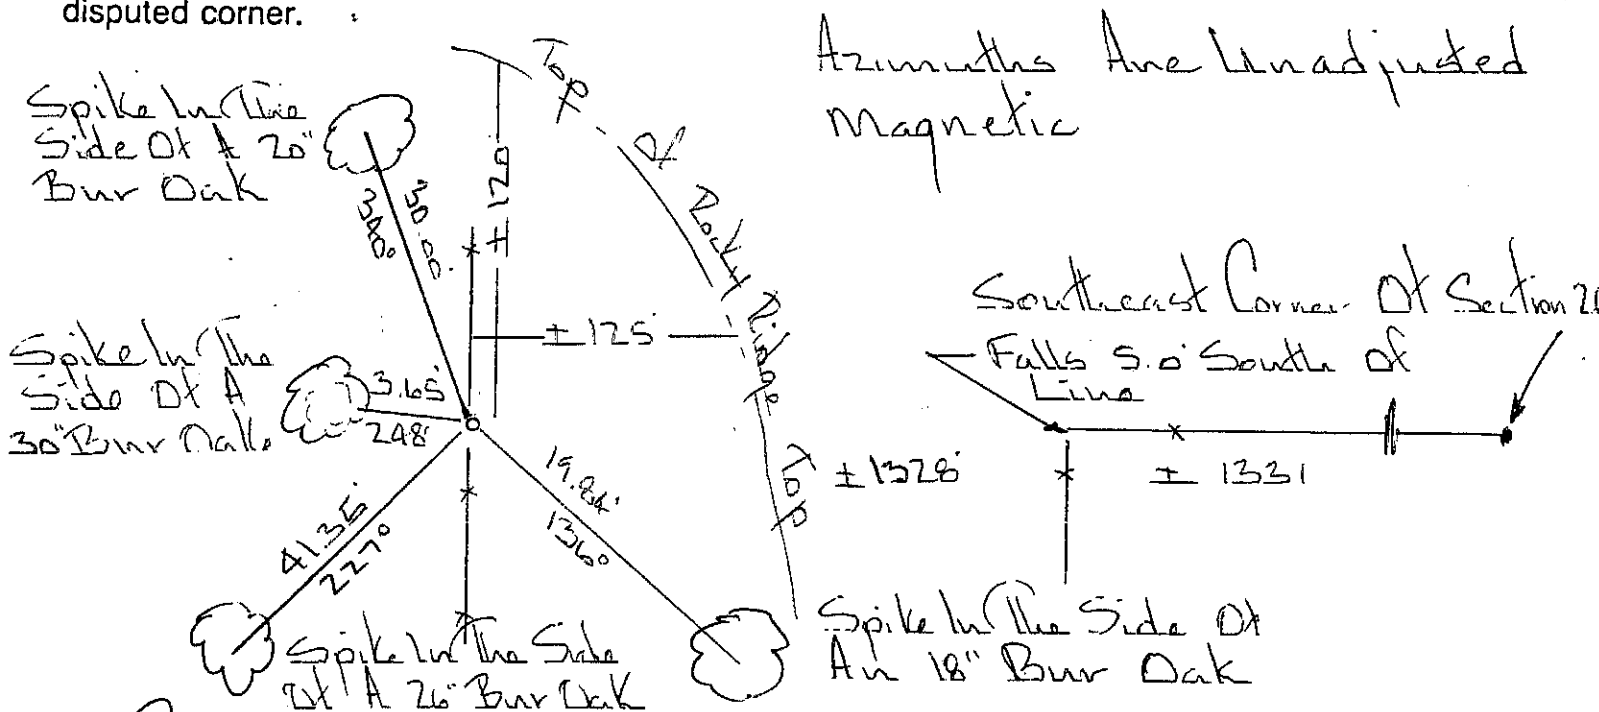 disputed corner.
Azimuths Are Unadjusted
Magnetic
Spike In The
Side Of A 20"
Bur Oak
340°
30.00'
± 120
Top Of Rocky Ridge
Top
± 125
Spike In The
Side Of A
30" Bur Oak
3.65'
248°
41.35'
227°
19.84'
136°
Spike In The Side
Of A 26" Bur Oak
Spike In The Side Of
An 18" Bur Oak
Southeast Corner Of Section
Falls 5.0' South Of
Line
± 1328'
± 1331